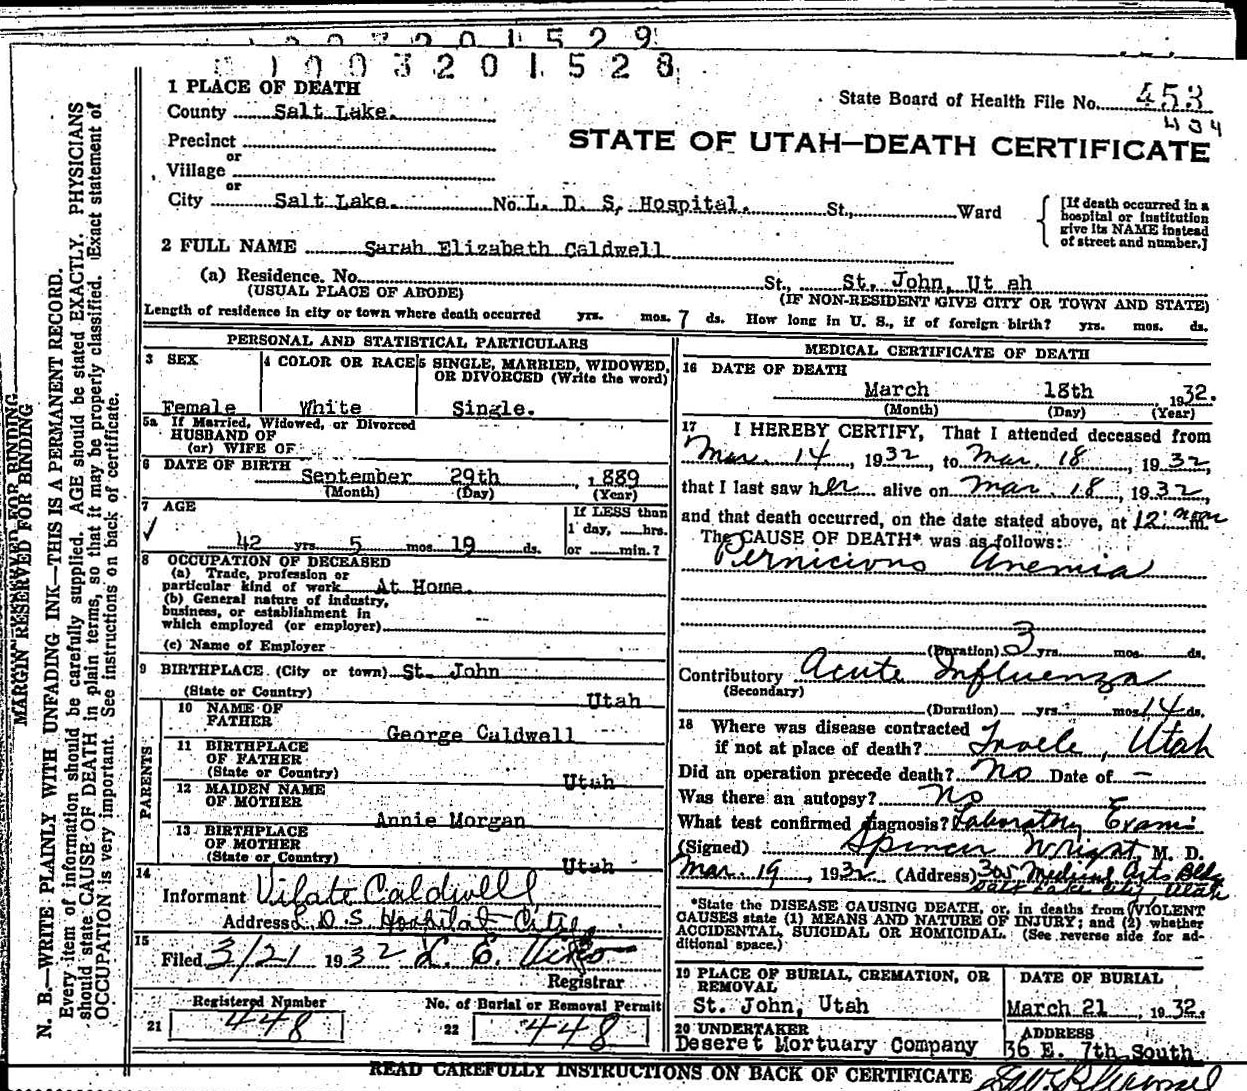 1003201529
1003201528
1 PLACE OF DEATH
State Board of Health File No. 453
434
County Salt Lake.
STATE OF UTAH—DEATH CERTIFICATE
Precinct
or
Village
or
City Salt Lake. No. L. D. S, Hospital. St., Ward
[If death occurred in a hospital or institution give its NAME instead of street and number.]
2 FULL NAME Sarah Elizabeth Caldwell
(a) Residence. No. St., St, John, Ut ah
(USUAL PLACE OF ABODE) (IF NON-RESIDENT GIVE CITY OR TOWN AND STATE)
Length of residence in city or town where death occurred yrs. mos. 7 ds. How long in U. S., if of foreign birth? yrs. mos. ds.
PERSONAL AND STATISTICAL PARTICULARS
3 SEX
Female
4 COLOR OR RACE
White
5 SINGLE, MARRIED, WIDOWED,
OR DIVORCED (Write the word)
Single.
5a If Married, Widowed, or Divorced
HUSBAND OF
(or) WIFE OF
6 DATE OF BIRTH
September 29th , 1889
(Month) (Day) (Year)
7 AGE
If LESS than
1 day, hrs.
or min.?
42 yrs. 5 mos. 19 ds.
8 OCCUPATION OF DECEASED
(a) Trade, profession or
particular kind of work At Home.
(b) General nature of industry,
business, or establishment in
which employed (or employer)
(c) Name of Employer
9 BIRTHPLACE (City or town) St. John
(State or Country) Utah
PARENTS
10 NAME OF
FATHER
George Caldwell
11 BIRTHPLACE
OF FATHER
(State or Country) Utah
12 MAIDEN NAME
OF MOTHER
Annie Morgan
13 BIRTHPLACE
OF MOTHER
(State or Country) Utah
14
Informant Vilate Caldwell
Address L.D.S Hospital City
15
Filed 3/21 1932
Registrar
Registered Number
21 448
No. of Burial or Removal Permit
22 448
MEDICAL CERTIFICATE OF DEATH
16 DATE OF DEATH
March 18th 1932.
(Month) (Day) (Year)
17 I HEREBY CERTIFY, That I attended deceased from
Mar. 14, 1932, to Mar. 18, 1932,
that I last saw her alive on Mar. 18, 1932,
and that death occurred, on the date stated above, at 12: noon m.
The CAUSE OF DEATH* was as follows:
Pernicious Anemia
(Duration) 3 yrs. mos. ds.
Contributory Acute Influenza
(Secondary)
(Duration) yrs. mos. 14 ds.
18 Where was disease contracted
if not at place of death? Tooele, Utah
Did an operation precede death? No Date of —
Was there an autopsy? No
What test confirmed diagnosis? Laboratory Exam:
(Signed) Spencer Wright, M. D.
Mar. 19, 1932 (Address) 305 Medical Arts Bldg
Salt Lake City Utah
*State the DISEASE CAUSING DEATH, or, in deaths from VIOLENT
CAUSES state (1) MEANS AND NATURE OF INJURY; and (2) whether
ACCIDENTAL, SUICIDAL OR HOMICIDAL. (See reverse side for ad-
ditional space.)
19 PLACE OF BURIAL, CREMATION, OR
REMOVAL
St. John, Utah
DATE OF BURIAL
March 21 , 1932.
20 UNDERTAKER
Deseret Mortuary Company
ADDRESS
36 E. 7th South
READ CAREFULLY INSTRUCTIONS ON BACK OF CERTIFICATE
MARGIN RESERVED FOR BINDING
N. B.—WRITE PLAINLY WITH UNFADING INK—THIS IS A PERMANENT RECORD.
Every item of information should be carefully supplied. AGE should be stated EXACTLY. PHYSICIANS
should state CAUSE OF DEATH in plain terms, so that it may be properly classified. Exact statement of
OCCUPATION is very important. See instructions on back of certificate.